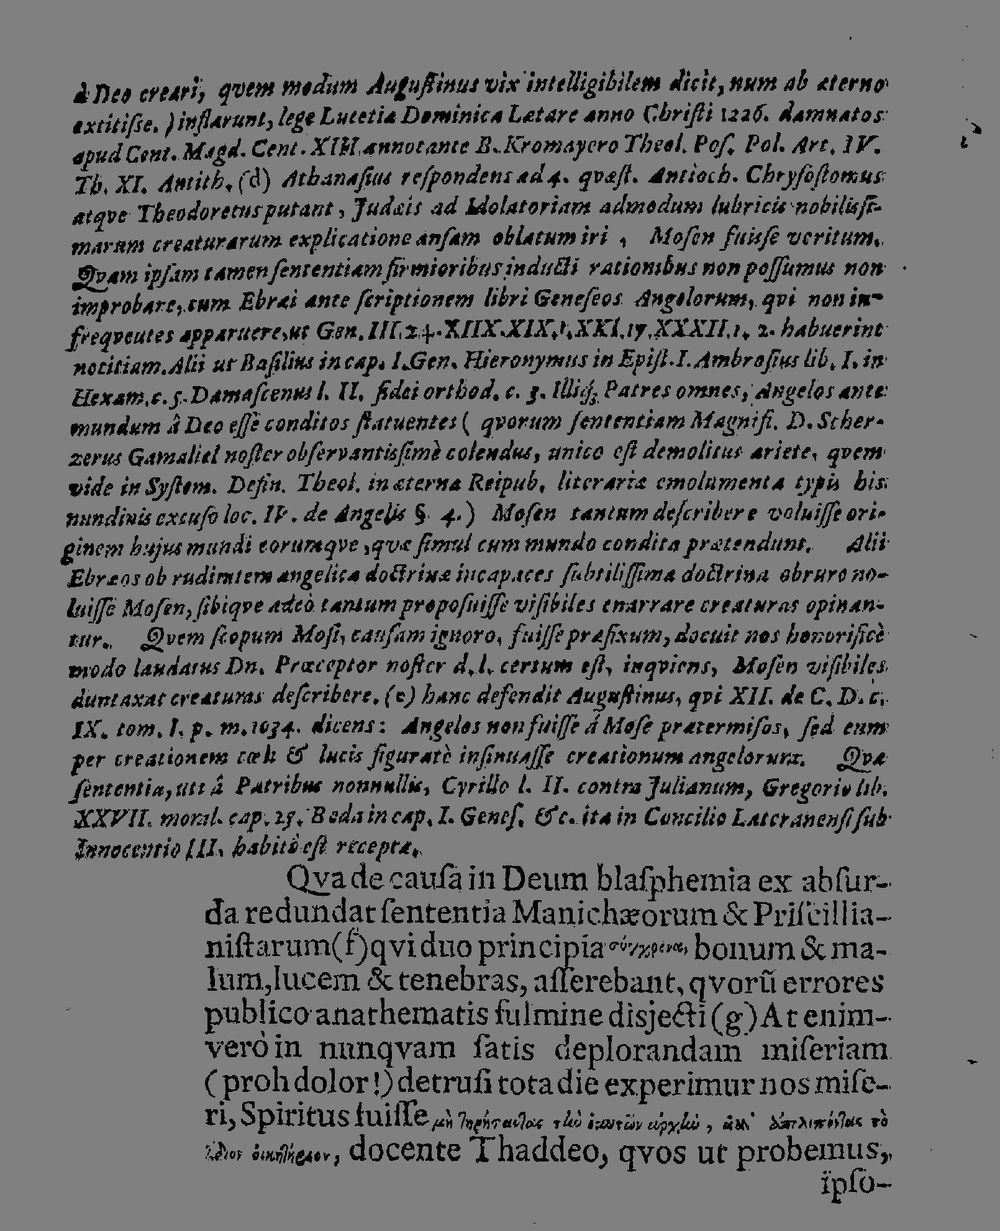 à Deo creari, qvem modum Auguſtinus vix intelligibilem dicit, num ab æterno
extitiſſe.) inflarunt, lege Lutetiæ Dominica Lætare anno Chriſti 1226. damnatos
apud Cent. Magd. Cent. XIII. annotante B. Kromayero Theol. Poſ. Pol. Art. IV.
Th. XI. Antith. (d) Athanaſius reſpondens ad 4. quæſt. Antioch. Chryſoſtomus
atqve Theodoretus putant, Judæis ad Idolatoriam admodum lubricis nobiliſſi-
marum creaturarum explicatione anſam oblatum iri, Moſen fuiſſe veritum.
Qvam ipſam tamen ſententiam firmioribus inducti rationibus non poſſumus non
improbare, cum Ebræi ante ſcriptionem libri Geneſeos Angelorum, qvi non in-
freqventes apparuere, ut Gen. III, 24. XIIX. XIX, 1, XXI, 17, XXXII, 1, 2. habuerint
notitiam. Alii ut Baſilius in cap. I. Gen. Hieronymus in Epiſt. I. Ambroſius lib. I. in
Hexam. c. 5. Damaſcenus l. II. fidei orthod. c. 3. Illiq; Patres omnes, Angelos ante
mundum â Deo eſſe conditos ſtatuentes (qvorum ſententiam Magnifi. D. Scher-
zerus Gamaliel noſter obſervantiſſimè colendus, unico eſt demolitus ariete, qvem
vide in Syſtem. Defin. Theol. in æterna Reipub. literariæ emolumenta typis bis
nundinis excuſo loc. IV. de Angelis §. 4.) Moſen tantum deſcribere voluiſſe ori-
ginem hujus mundi eorumqve, qvæ ſimul cum mundo condita prætendunt. Alii
Ebræos ob rudimtem angelicæ doctrinæ incapaces ſubtiliſſima doctrina obruro no-
luiſſe Moſen, ſibiqve adeò tantum propoſuiſſe viſibiles enarrare creaturas opinan-
tur. Qvem ſcopum Moſi, cauſam ignoro, fuiſſe præfixum, docuit nos honorificè
modo laudatus Dn. Præceptor noſter d. l. certum eſt, inqviens, Moſen viſibiles
duntaxat creaturas deſcribere. (e) hanc defendit Auguſtinus, qvi XII. de C. D. c.
IX. tom. I. p. m. 1034. dicens: Angelos non fuiſſe á Moſe prætermiſos, ſed eum
per creationem cœli & lucis figuratè inſinuaſſe creationum angelorum. Qvæ
ſententia, uti â Patribus nonnullis, Cyrillo l. II. contra Julianum, Gregorio lib.
XXVII. moral. cap. 25. Beda in cap. I. Geneſ. &c. ita in Concilio Lateranenſi ſub
Innocentio III. habitò eſt recepta.
Qva de cauſa in Deum blaſphemia ex abſur-
da redundat ſententia Manichæorum & Priſcillia-
niſtarum (f) qvi duo principia bonum & ma-
lum, lucem & tenebras, aſſerebant, qvorũ errores
publico anathematis fulmine disjecti (g) At enim-
verò in nunqvam ſatis deplorandam miſeriam
(proh dolor!) detruſi tota die experimur nos miſe-
ri, Spiritus fuiſſe
docente Thaddeo, qvos ut probemus,
ipſo-